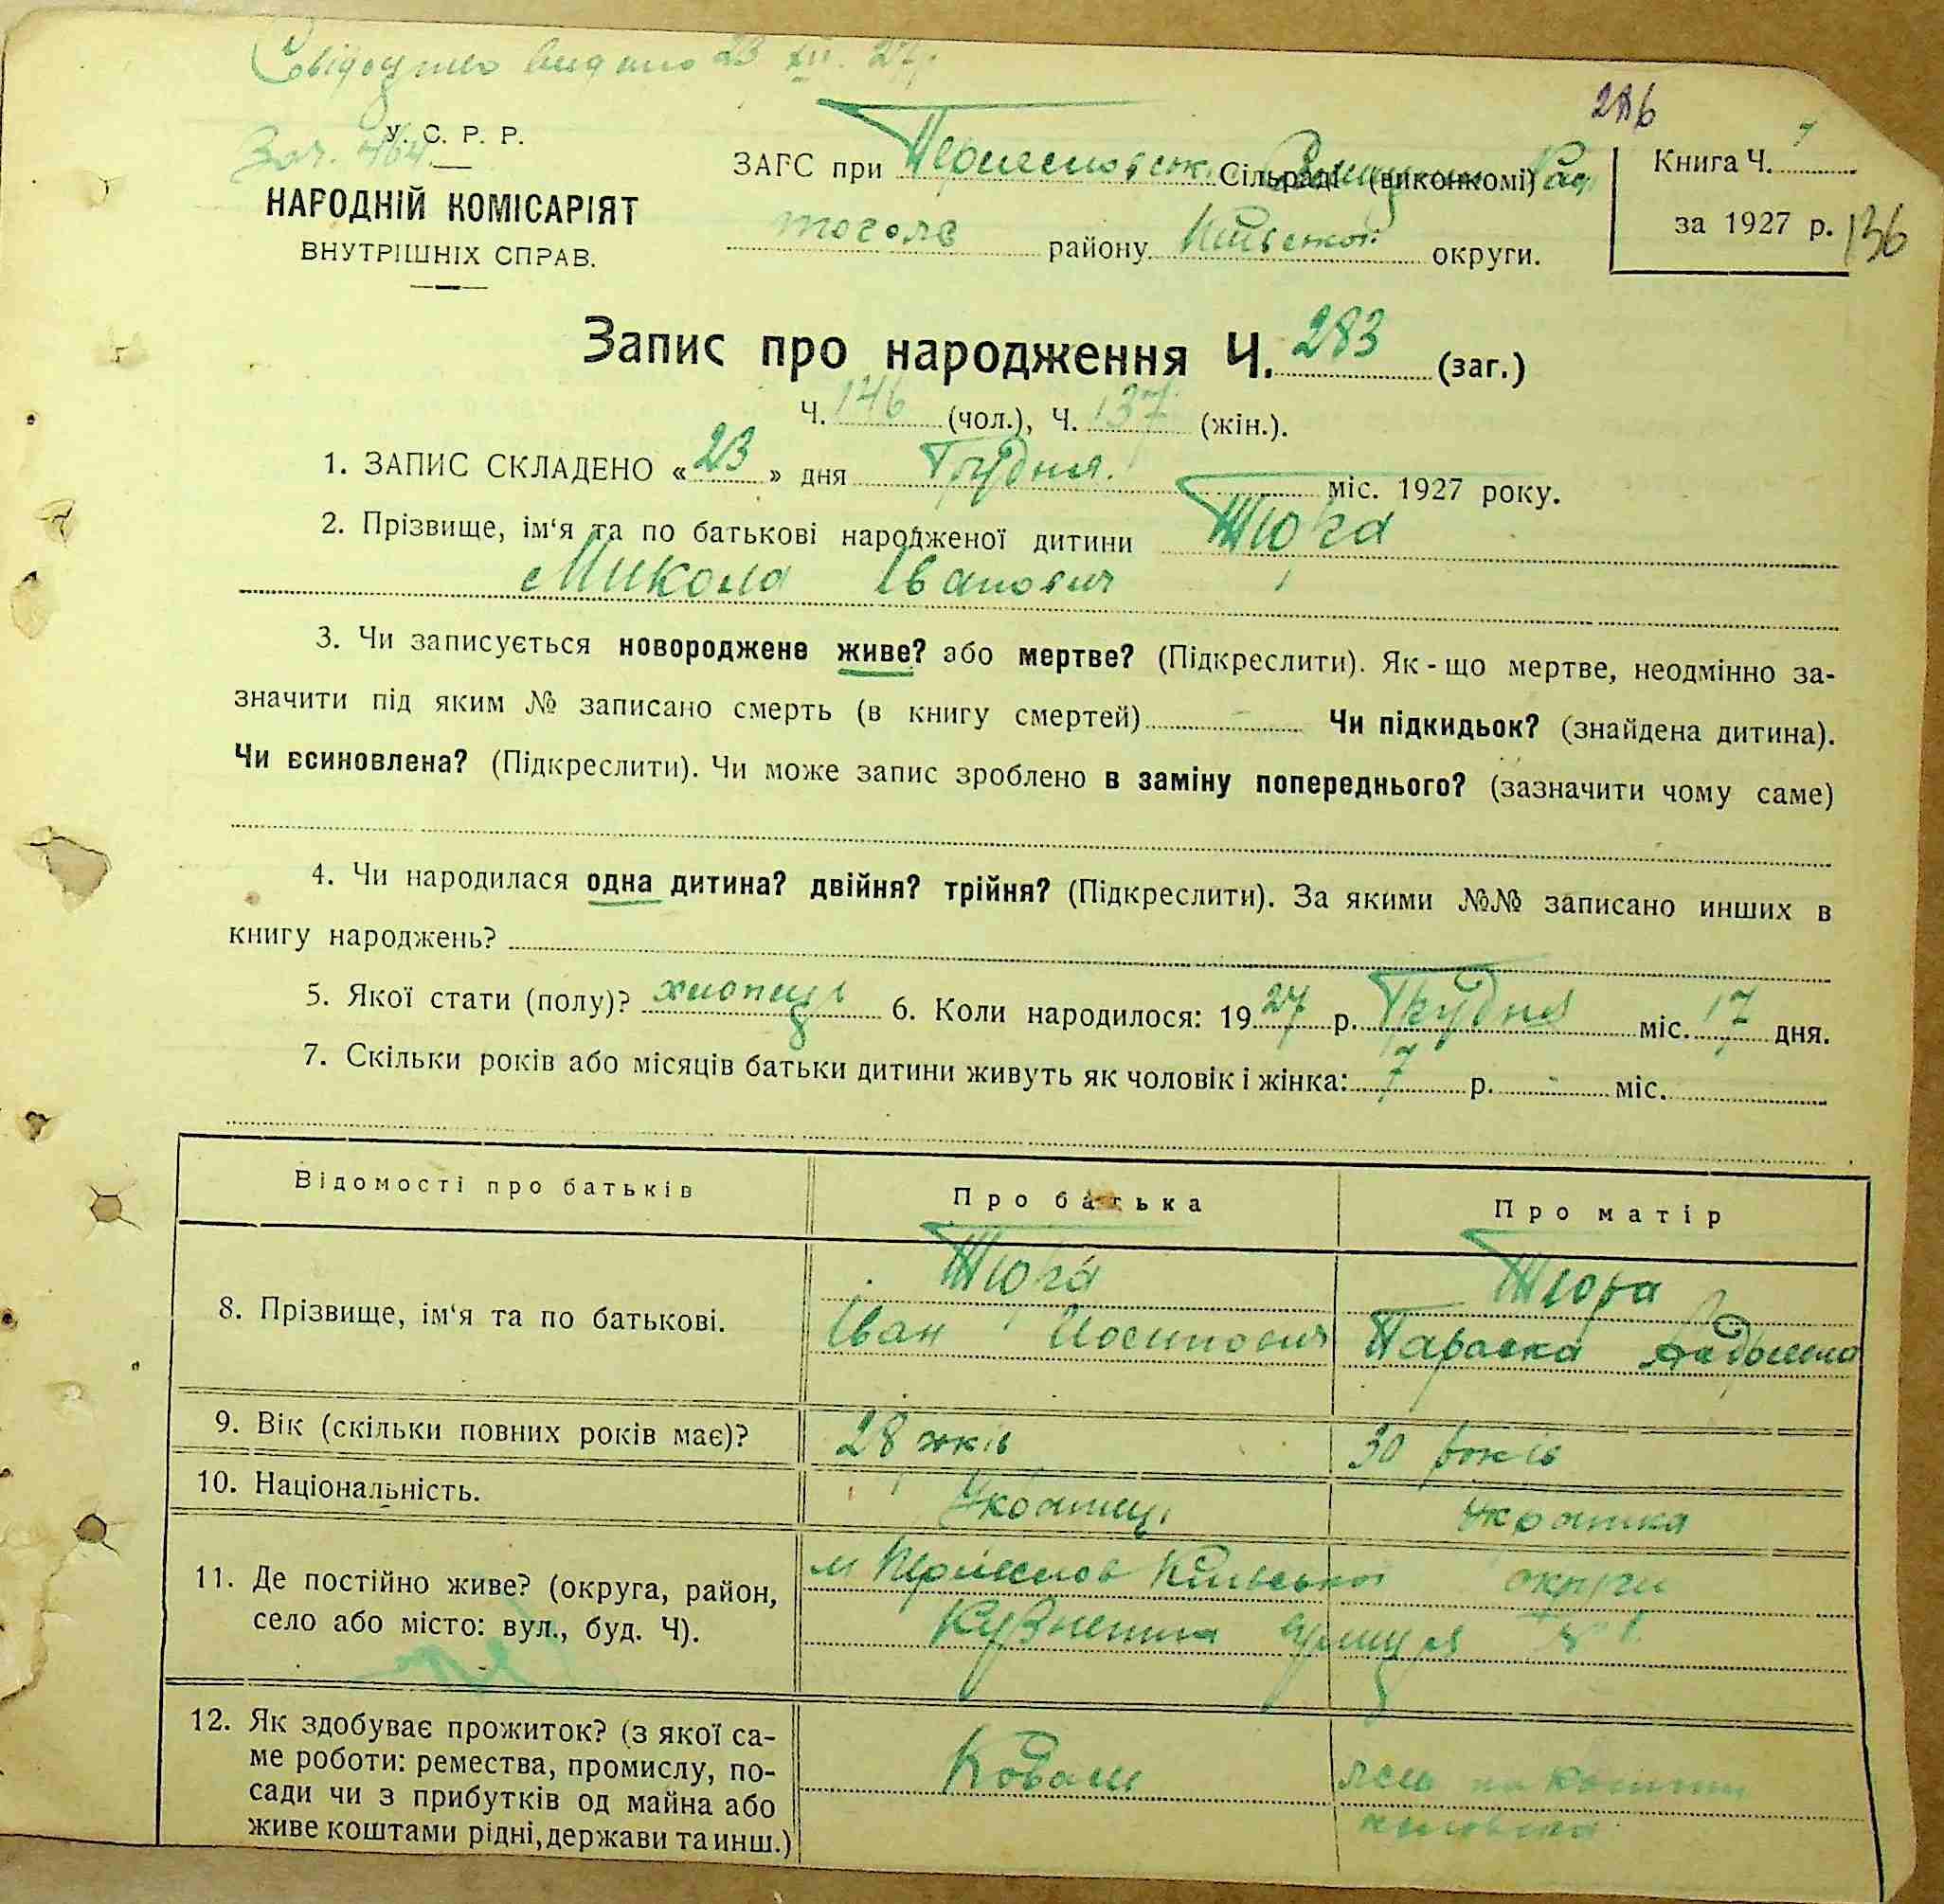 Свідоцтво видано 23 XII. 27 р.
286
У. С. Р. Р.
НАРОДНІЙ КОМІСАРІЯТ
ВНУТРІШНІХ СПРАВ.
ЗАГС при Переясловськ. Сільраді (виконкомі)
районy Київської округи.
Книга Ч.
за 1927 р. 136
Запис про народження Ч. 283 (заг.)
Ч. 146 (чол.), Ч. 137 (жін.).
1. ЗАПИС СКЛАДЕНО «23» дня Грудня. міс. 1927 року.
2. Прізвище, ім‘я та по батькові народженої дитини Тюра
Микола Іванович
3. Чи записується новороджене живе? або мертве? (Підкреслити). Як-що мертве, неодмінно за-
значити під яким № записано смерть (в книгу смертей) - Чи підкидьок? (знайдена дитина).
Чи всиновлена? (Підкреслити). Чи може запис зроблено в заміну попереднього? (зазначити чому саме)
4. Чи народилася одна дитина? двійня? трійня? (Підкреслити). За якими №№ записано инших в
книгу народжень?
5. Якої стати (полу)? хлопець 6. Коли народилося: 1927 р. Грудня міс. 17 дня.
7. Скільки років або місяців батьки дитини живуть як чоловік і жінка: 7 р. - міс.
Відомості про батьків Про батька Про матір
8. Прізвище, ім‘я та по батькові. Тюра Тюра
Іван Йосипович Параска
9. Вік (скільки повних років має)? 28 років 30 років
10. Національність. Українець Українка
11. Де постійно живе? (округа, район,
село або місто: вул., буд. Ч).
м Переяслов Київської округи
Кузнешна вулиця № 1.
12. Як здобуває прожиток? (з якої са-
ме роботи: ремества, промислу, по-
сади чи з прибутків од майна або
живе коштами рідні, держави та инш.)
Коваль
на кошти
чоловіка